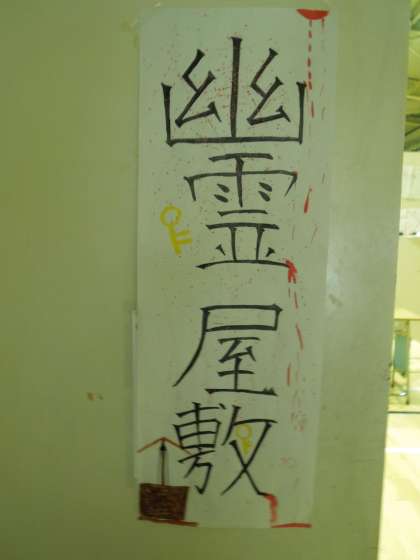 幽霊屋敷